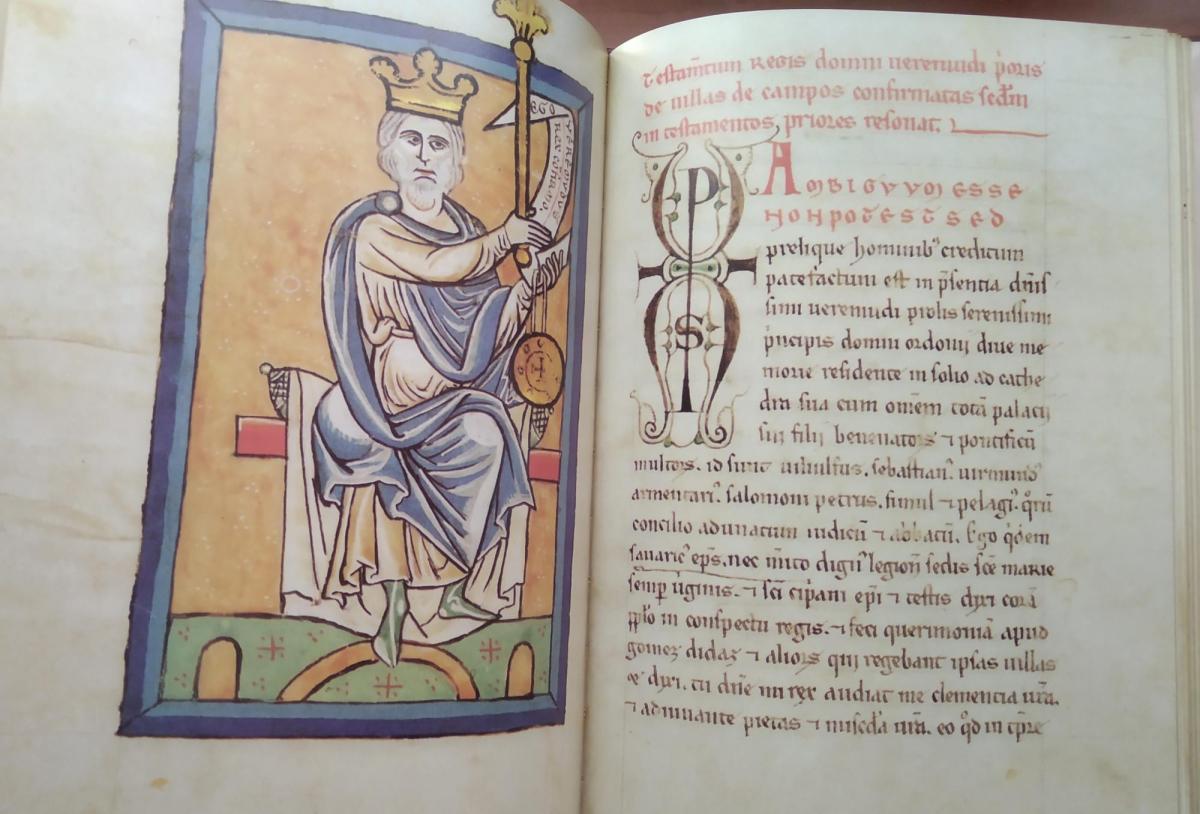 EGO
VEREMVDVS
REX CONFIRMO.
Testam̅tum regis domni ueremudi p̅oris
de uillas de campos confirmatas sed̅m
in testamentos priores resonat.
P
S
Ambiguum esse
non potest sed
pre lique hominib' creditum
patefactum est in p̅sentia dn̅is
simi ueremudi prolis serenissimi
p̅ncipis domni ordonii diue me
morie residente in solio ad cathe
dra sua cum om̅em tota̅ palacii
sui filii benenatorȝ ⁊ pontificu̅
multorȝ. id sunt uiliulfus. sebastian'. uirmund'
armentari'. salomoni petrus. simul ⁊ pelagi'. q̊rum
concilio adunatium iudicu̅ ⁊ abbatu̅. Ego q̊dem
sauaric' ep̅s. nec inmito dign' legion̅ sedis sc̅e marie
semp̅ uirginis. ⁊ sc̅i cip̅ani ep̅i ⁊ testis dyxi cora̅
pp̅lo in conspectu regis. ⁊ feci querimonia̅ apud
gomez didaz ⁊ aliorȝ qui regebant ipsas uillas
⁊ dyxi. tu dn̅e mi rex audiat me clementia ur̅a.
⁊ adiuuante pietas ⁊ misc̅da ur̅a. eo q̊d in tp̅re